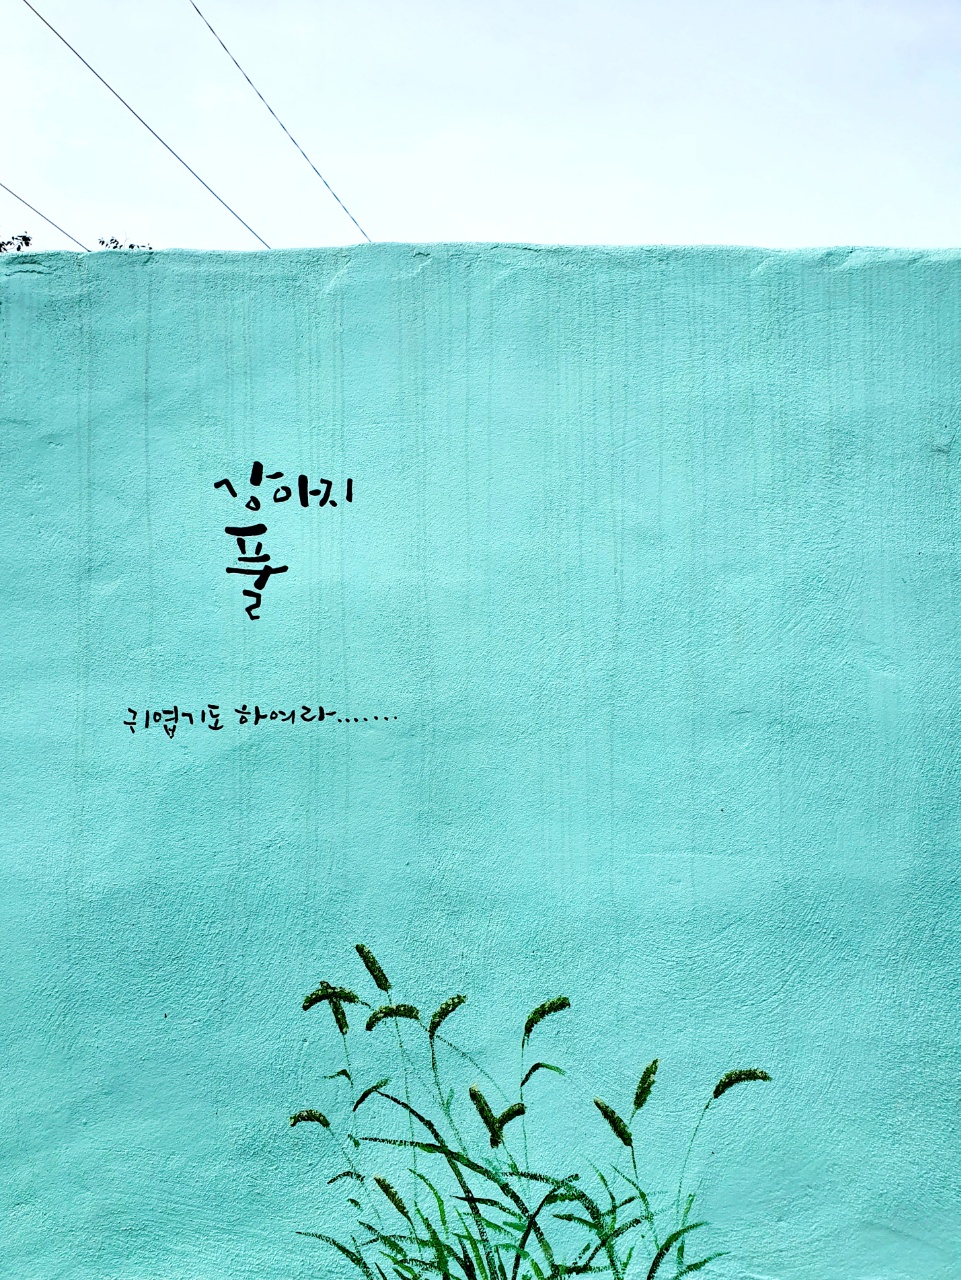 강아지
풀
귀엽기도 하여라.......